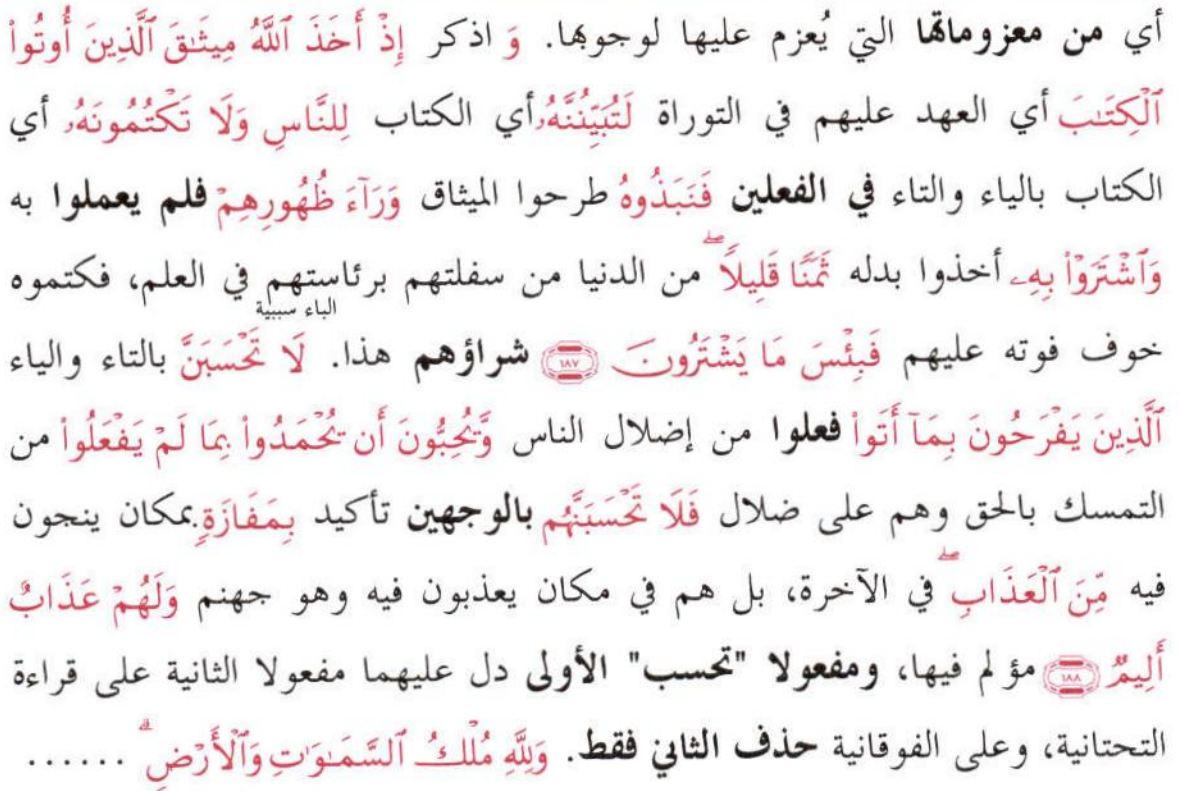 أي من معزوماتها التي يُعزم عليها لوجوبها. وَ اذكر إِذْ أَخَذَ ٱللَّهُ مِيثَٰقَ ٱلَّذِينَ أُوتُوا۟
ٱلْكِتَٰبَ أي العهد عليهم في التوراة لَتُبَيِّنُنَّهُۥ أي الكتاب لِلنَّاسِ وَلَا تَكْتُمُونَهُۥ أي
الكتاب بالياء والتاء في الفعلين فَنَبَذُوهُ طرحوا الميثاق وَرَآءَ ظُهُورِهِمْ فلم يعملوا به
وَٱشْتَرَوْا۟ بِهِۦ أخذوا بدله ثَمَنًا قَلِيلًا ۖ من الدنيا من سفلتهم برئاستهم في العلم، فكتموه
الباء سببية
خوف فوته عليهم فَبِئْسَ مَا يَشْتَرُونَ ١٨٧ شراؤهم هذا. لَا تَحْسَبَنَّ بالتاء والياء
ٱلَّذِينَ يَفْرَحُونَ بِمَآ أَتَوا۟ فعلوا من إضلال الناس وَّيُحِبُّونَ أَن يُحْمَدُوا۟ بِمَا لَمْ يَفْعَلُوا۟ من
التمسك بالحق وهم على ضلال فَلَا تَحْسَبَنَّهُم بالوجهين تأكيد بِمَفَازَةٍ بمكان ينجون
فيه مِّنَ ٱلْعَذَابِ ۖ في الآخرة، بل هم في مكان يعذبون فيه وهو جهنم وَلَهُمْ عَذَابٌ
أَلِيمٌ ١٨٨ مؤلم فيها، ومفعولا "تحسب" الأولى دل عليهما مفعولا الثانية على قراءة
التحتانية، وعلى الفوقانية حذف الثاني فقط. وَلِلَّهِ مُلْكُ ٱلسَّمَٰوَٰتِ وَٱلْأَرْضِ ۗ ......